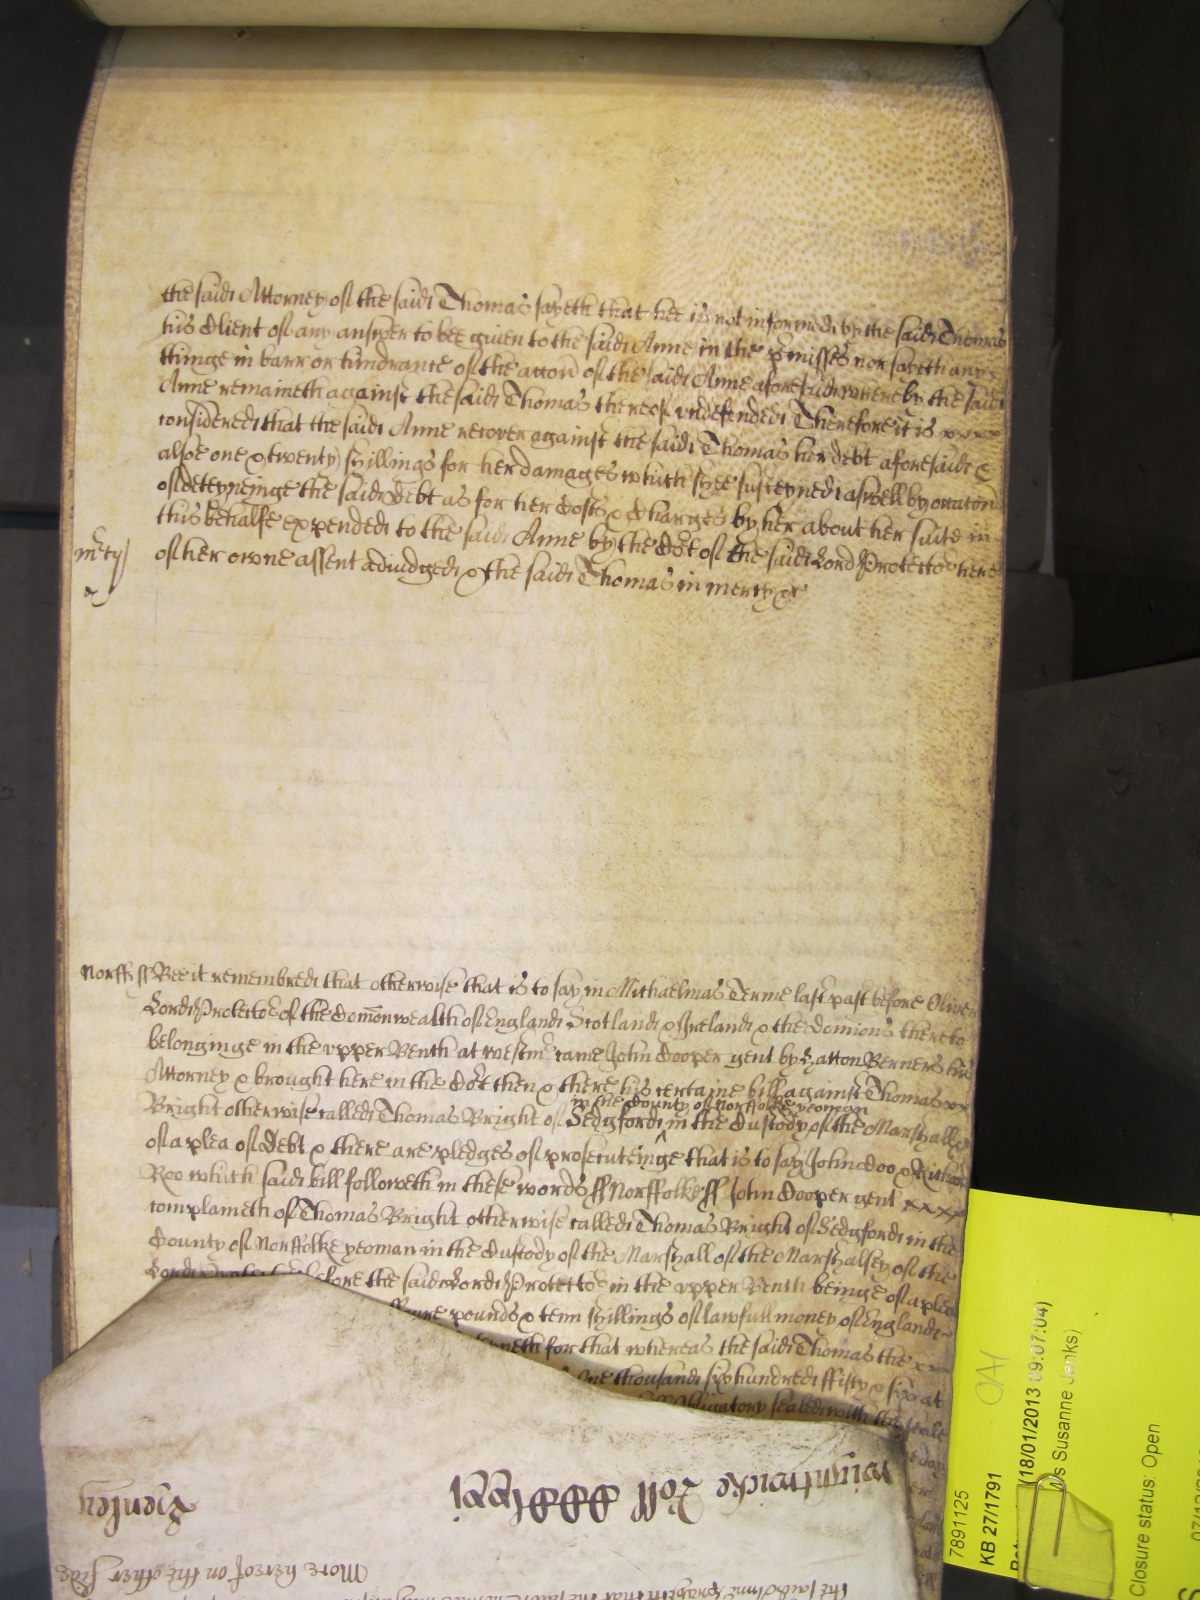 the said Attorney of the said Thomas sayeth that hee is not informed by the said Thomas
his Client of any answer to bee given to the said Anne in the p̱misses nor sayeth any
thinge in barr or hindrance of the accon̄ of the said Anne aforesaid whereby the said
Anne remaineth against the said Thomas thereof undefended Therefore it is
considered that the said Anne recover against the said Thomas her debt aforesaid &
alsoe one & twenty shillings for her damages which shee susteyned aswell by occacon̄
of deteyneinge the said Debt as for her Costs & Charges by her about her suite in
this behalfe expended to the said Anne by the Co͞t of the said Lord Protector here
m͞cy
of her owne assent adiudged & the said Thomas in mercy &c
Norff ss Bee it remembred that otherwise that is to say in Michaelmas Terme last past before Oliver
Lord Protector of the Com̄onwealth of England Scotland & Ireland & the domions thereto
belonginge in the upper Bench at westm̄ came John Cooper gent by Hatton Berners his
Attorney & brought here in the Co͞t then & there his certaine bill against Thomas
in the County of Norffolke yeoman
Bright otherwise called Thomas Bright of Sedgford ^ in the Custody of the Marshall &c
of a plea of Debt & there are pledges of prosecuteinge that is to say John doo & Richard
Roo which said bill followeth in these words ss Norffolke ss John Cooper gent
complaineth of Thomas Bright otherwise called Thomas Bright of Sedgford in the
County of Norffolke yeoman in the Custody of the Marshall of the Marshalsey of the
Lord before the said Lord Protector in the upper Bench beinge of a plea
pounds & tenn shillings of lawfull money of England
for that whereas the said Thomas the
One thousand six hundred ffifty & six at
Obligatory sealed with the seale
Henley
Roll
More hereof on the other side
7891125
KB 27/1791
(18/01/2013 09:07:04)
s Susanne Jenks)
Closure status: Open